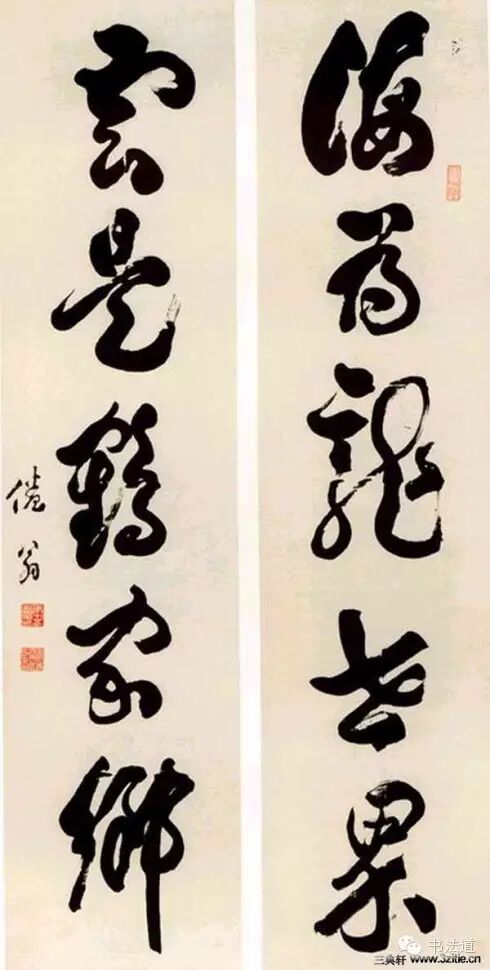 海為龍世界
雲是鶴家鄉
倦翁
书法道
三典轩 www.3zitie.cn